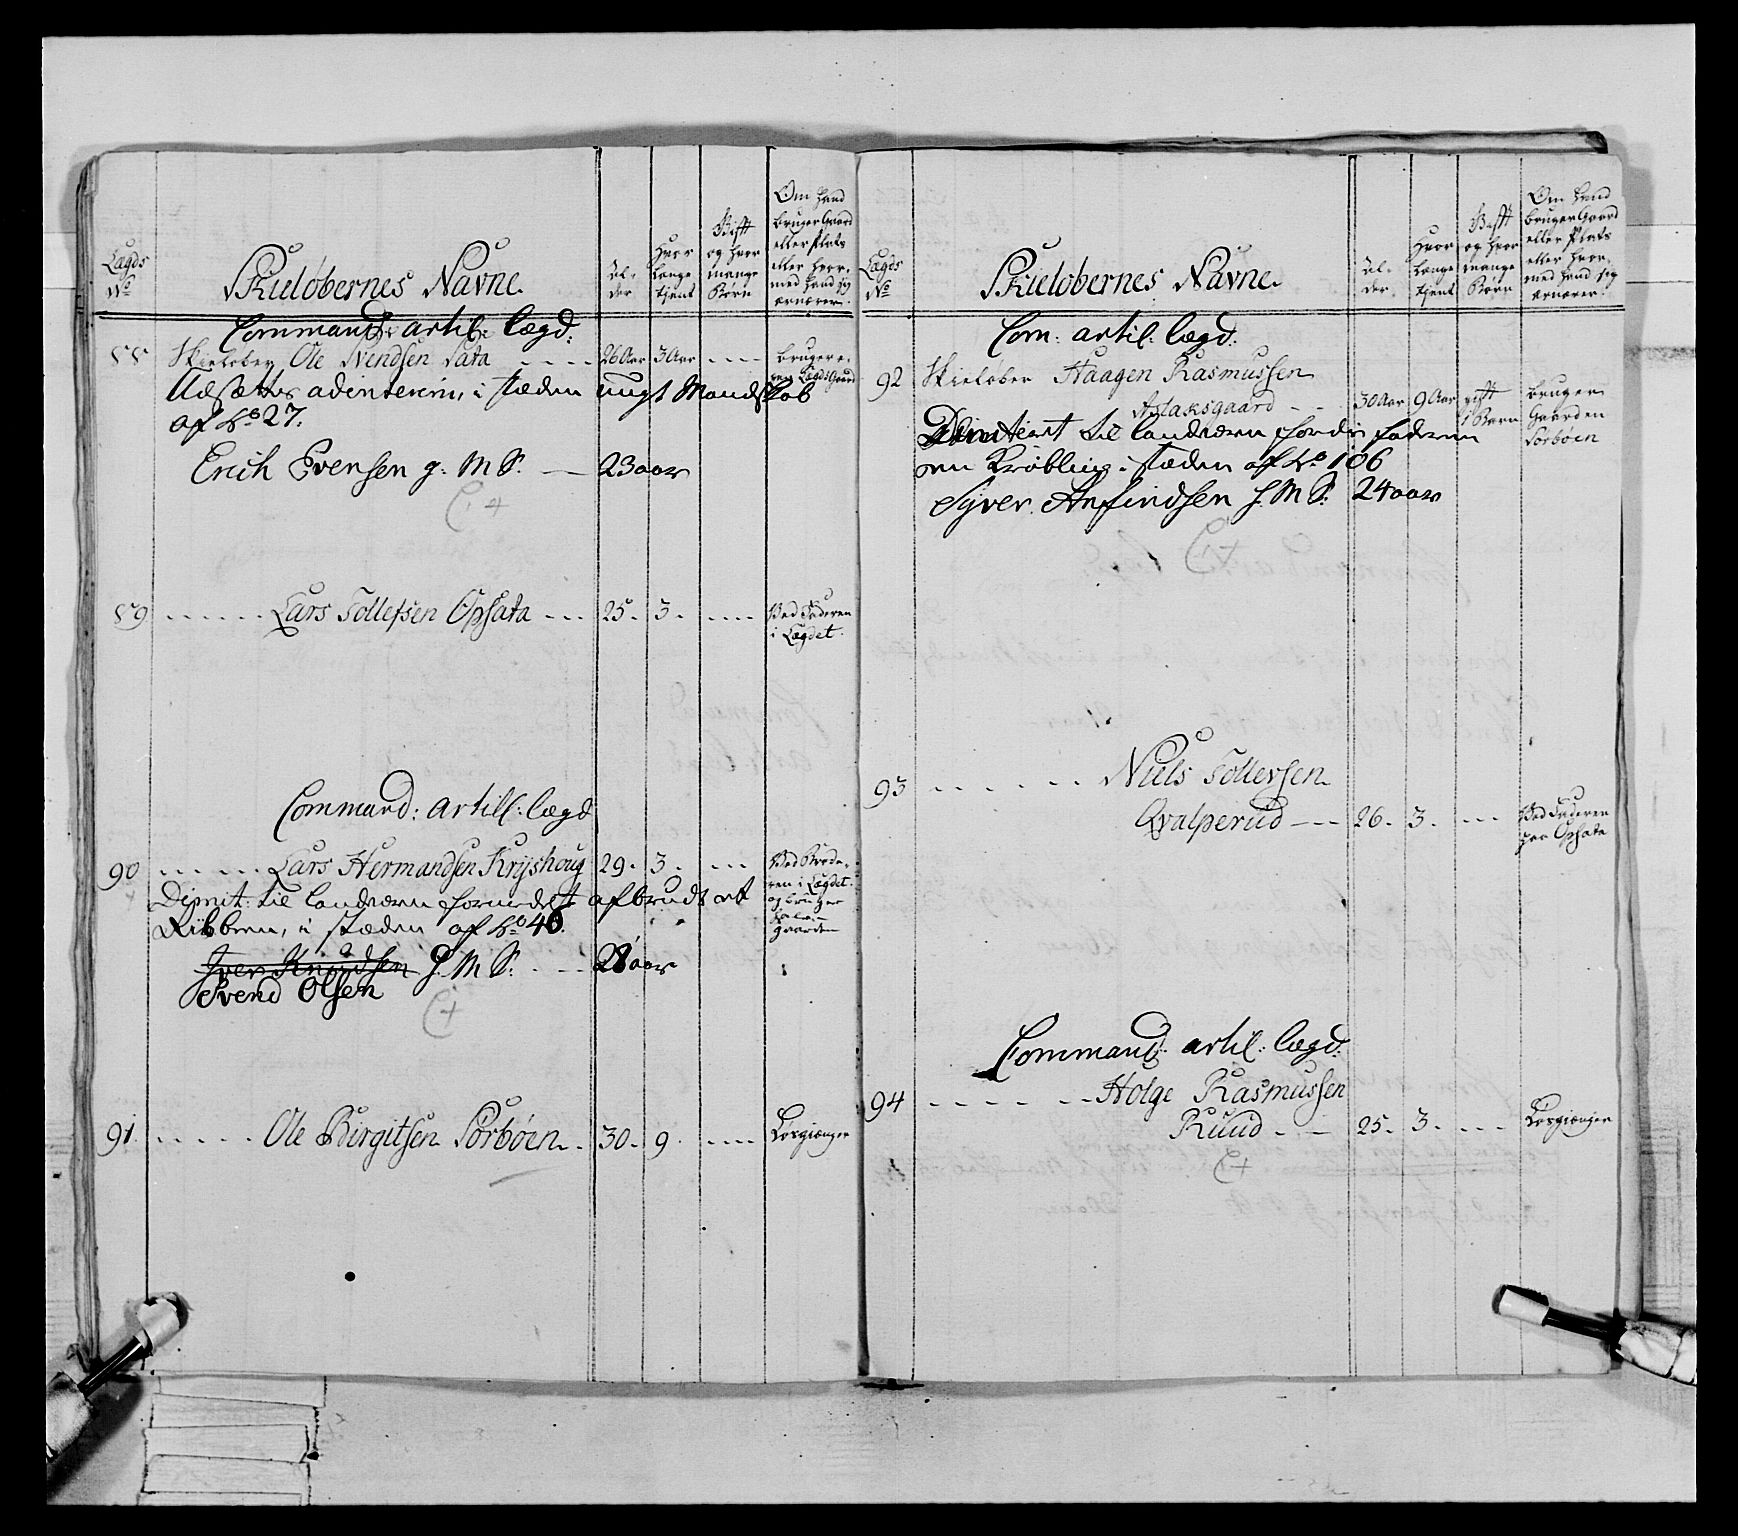 Lægds No
Skieløbernes Navne
Al-
der
Hvor
længe
tjent
Gift
og hvor
mange
Børn
Om hand
bruger Gaard
eller Plats
eller hvor-
med hand sig
ernærer.
Command: artil: lægd:
88 Skieløber Ole Svendsen Sata - - - - 26 Aar 3 Aar - - - - bruger e-
gen Lægds Gaard
Udsættes, i stæden ungt Mandskab
af No 27.
Erich Svensen g: M S. — 23 aar
89 - - - - - - Lars Tollefsen Opsata - - - 25. 3. - - - - Ved Faderen
i Lægdet.
Command: artill: lægd
90 - - - - - Lars Hermandsen Krijshoug 29. 3. - - - Ved Brode-
ren i Lægdet.
og bruger
halve
gaarden
Dimit: til landværn formedelst afbrudt et
Ribben, i stæden af No 40.
Iver Knudsen g. M S. - - 28 aar
Svend Olsen
91. - - - - - Ole Birgitsen Sørbøen. 30. 9. - - - - Løsgiænger
Lægds
No
Skieløbernes Navne.
Al-
der.
Hvor
længe
tjent
Gift
og hvor
mange
Børn
Om hand
bruger Gaard
eller Plats
eller hvor-
med hand sig
ernærer.
Com: artil: lægd.
92 Skieløber Haagen Rasmussen
Aslaksgaard - - 30 Aar 9 Aar gift 1 Barn bruger
Gaarden
Sørbøen
Dimitteret til landværn fordi faderen
en Krøbling i stæden af No 106
Syver Anfindsen g. M S: 24 aar
93 - - - - - - Niels Tollefsen
Qvalperud - - - 26. 3. - - - Ved Faderen
paa Opsata
Command: artil: lægd:
94 - - - - - - Holge Rasmussen
Ruud - - - 25. 3. - - - Løsgiænger